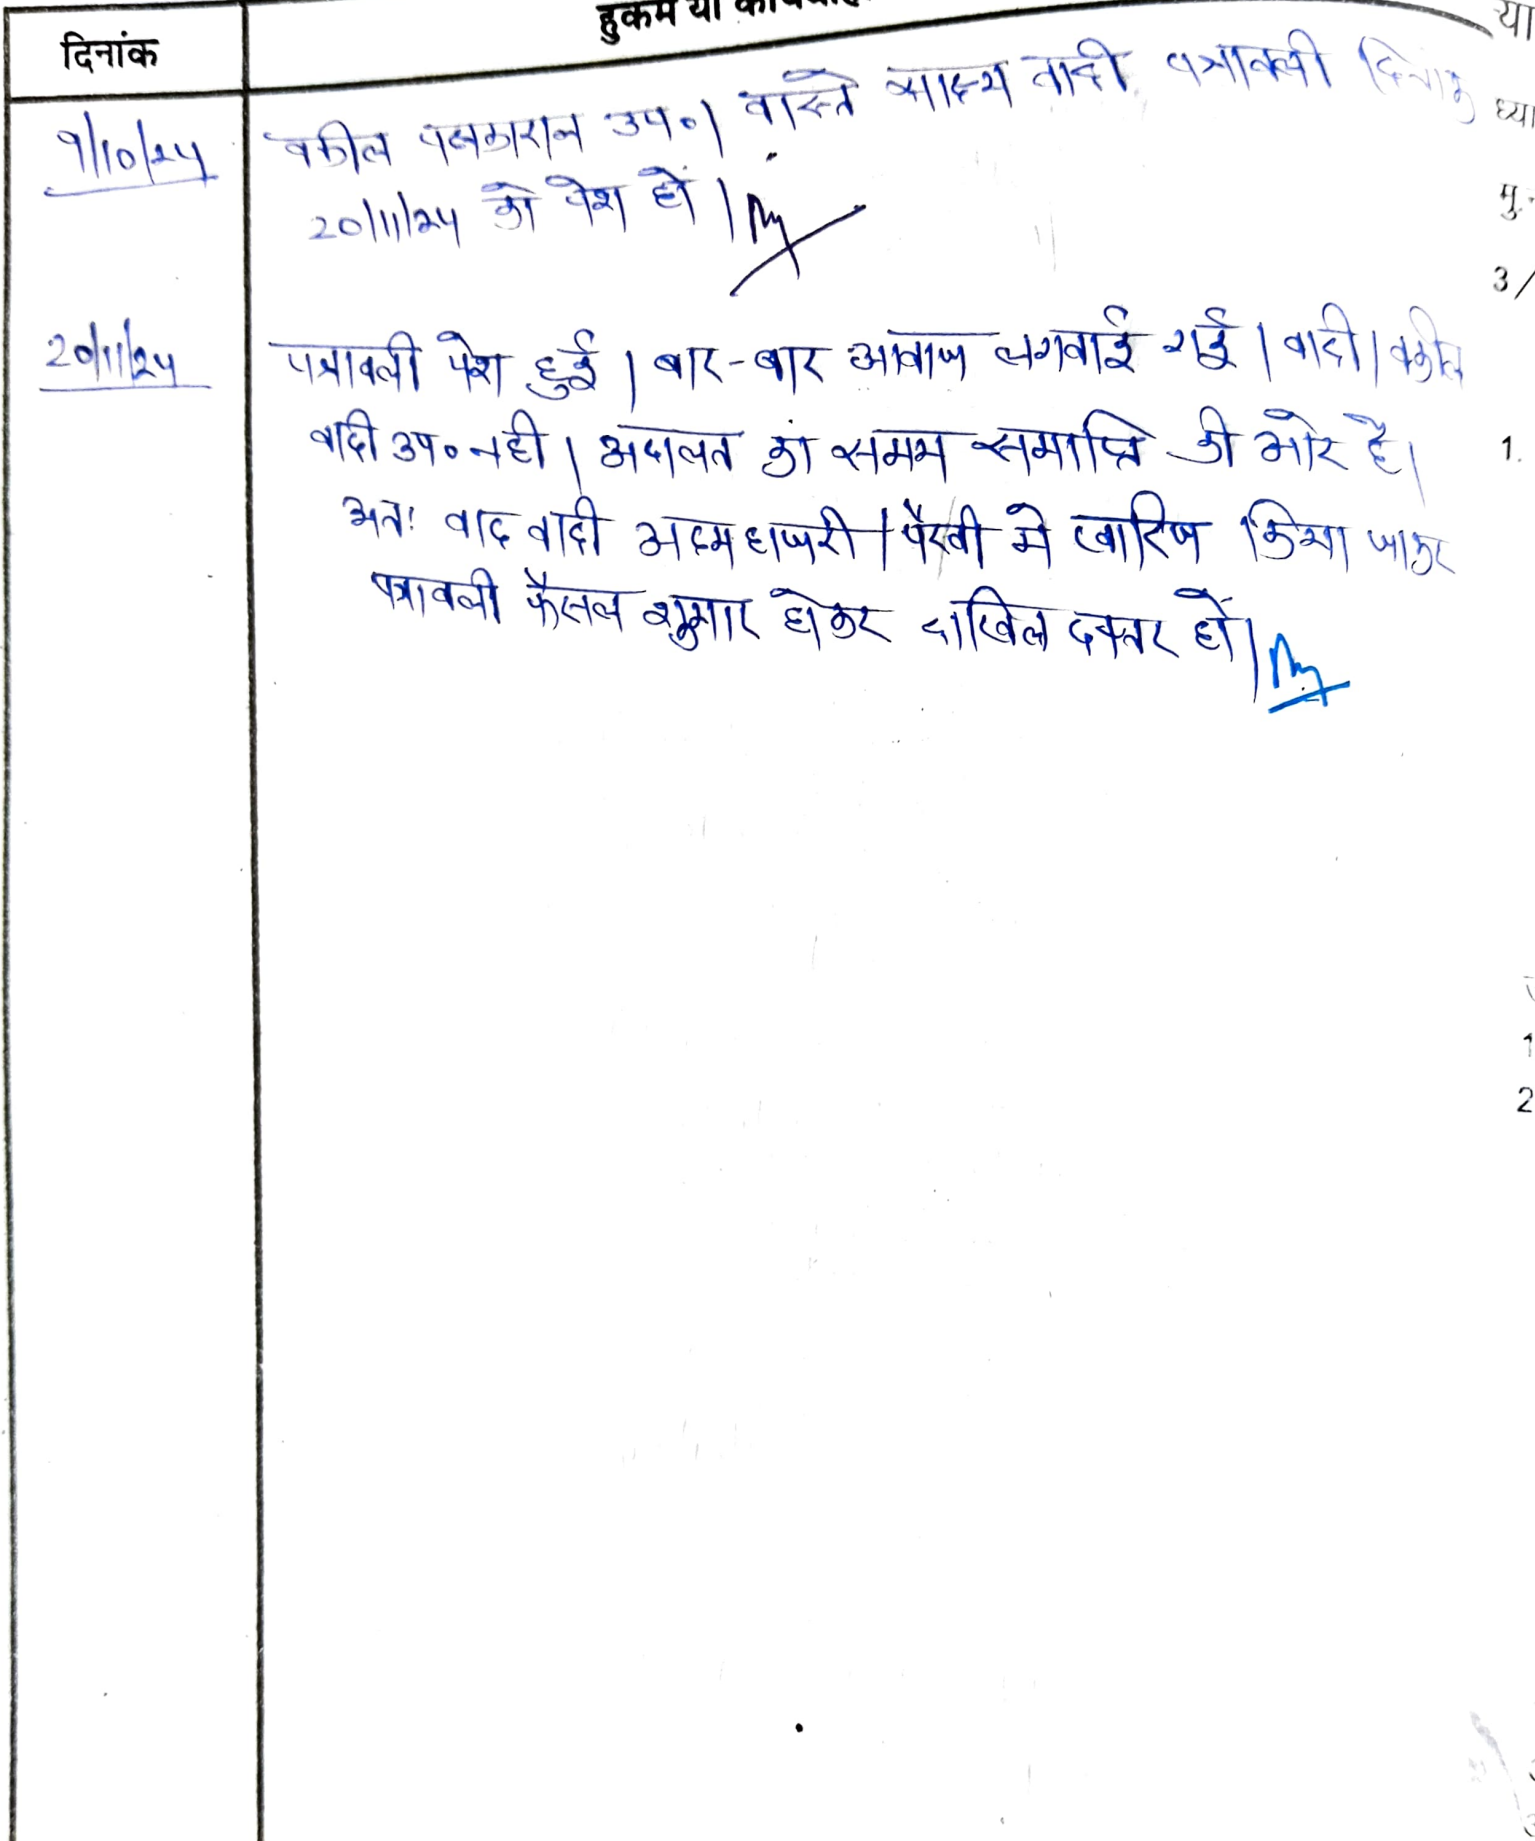 हुकम या
दिनांक
9/10/24 वकील पक्षकारान उप०। वास्ते साक्ष्य वादी पत्रावली दिनांक
20/11/24 को पेश हों।
20/11/24 पत्रावली पेश हुई। बार-बार आवाज लगवाई गई। वादी/वकील
वादी उप० नही। अदालत का समय समाप्ति की ओर है।
अतः वाद वादी अदम हाजरी/पैरवी मे खारिज किया जाकर
पत्रावली फैसल शुमार होकर दाखिल दफ्तर हों।
या
ध्या
मु.
3/
1.
1
2